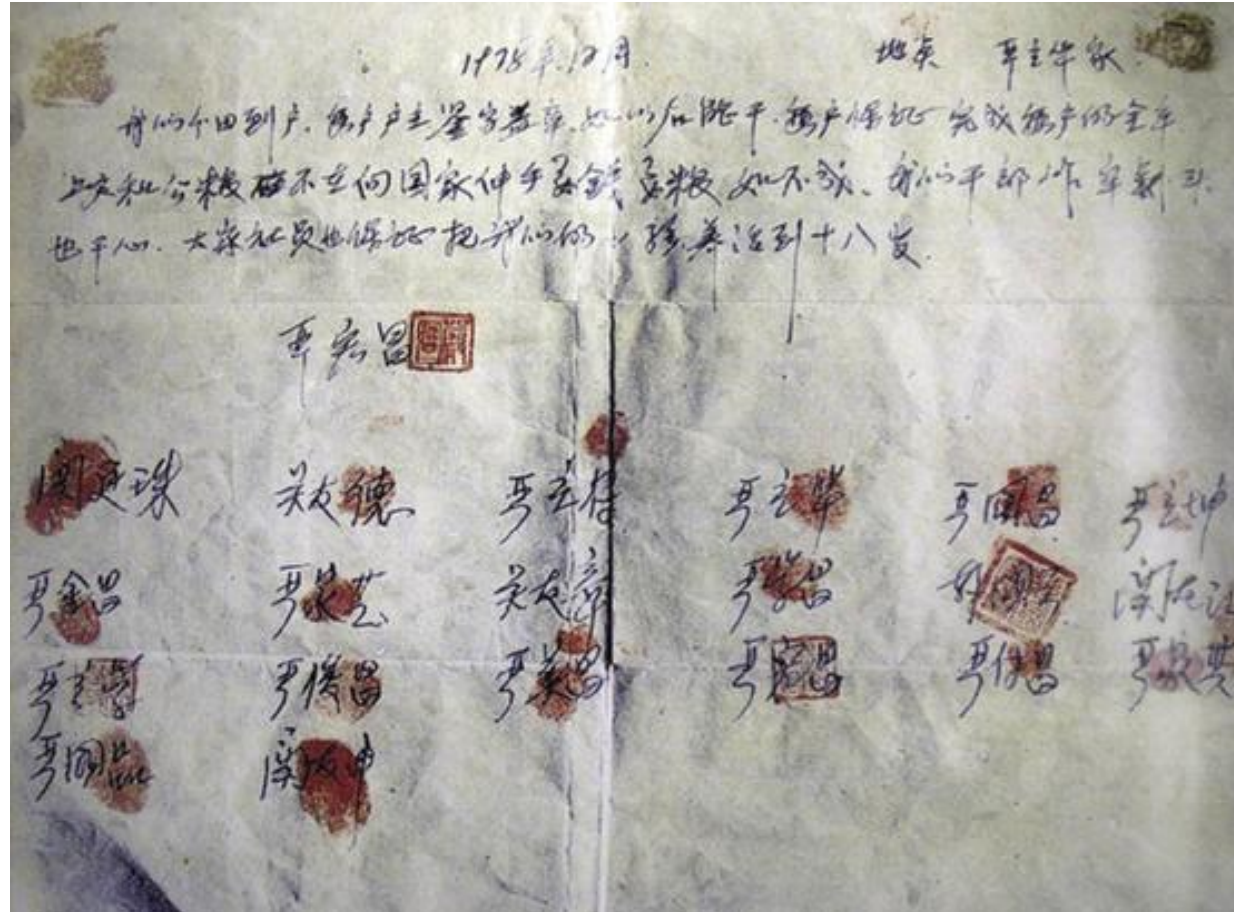 1978年12月. 地点 严立华家.
我们分田到户,每户户主签字盖章,如以后能干,每户保证完成每户的全年
上交和公粮不在向国家伸手要钱要粮如不成,我们干部作牢刹头
也干心,大家社员也保证把我们的小孩养活到十八岁.
严宏昌
関廷珠 关友德 严立符 严立华 严国昌 严立坤
严金昌 严家芝 关友章 严学昌 関友江
严立学 严俊昌 严美昌 严宏昌 严付昌 严家其
严国品 関友申